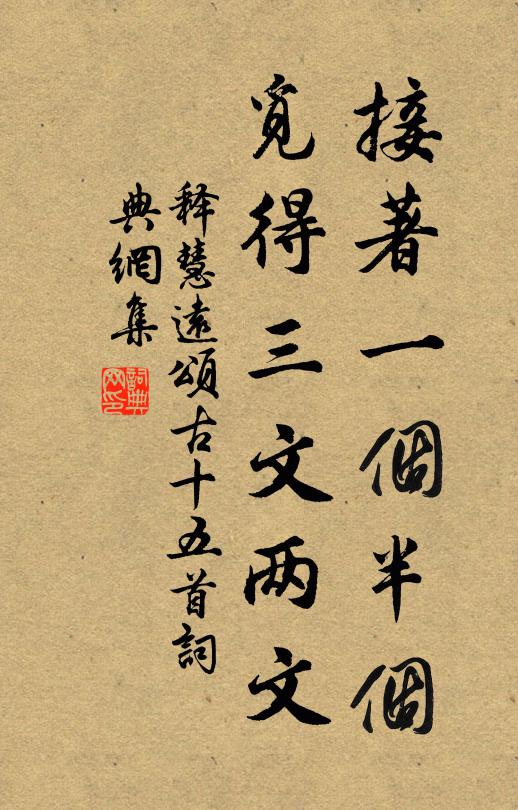 接著一個半個
覓得三文两文
释慧遠頌古十五首詞
典網集
詞典
网印